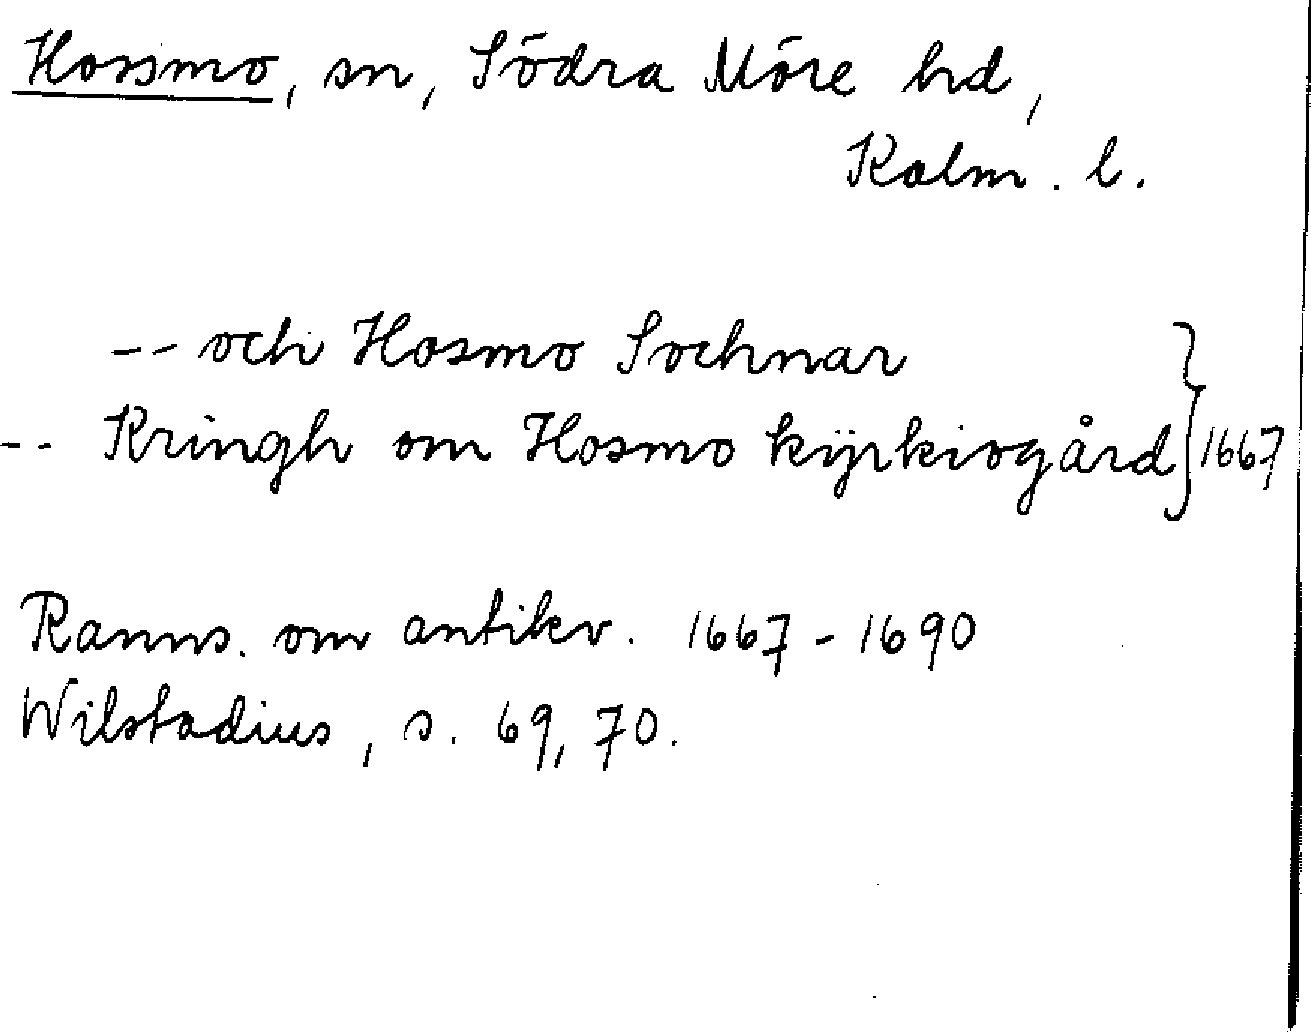 Hossmo, sn, Södra Möre hd,
Kalm. l.
-- och Hosmo Sochnar
-- Kringh om Hosmo kÿrkiogård } 1667
Ranns. om antikv. 1667-1690
Wilstadius, s. 69, 70.